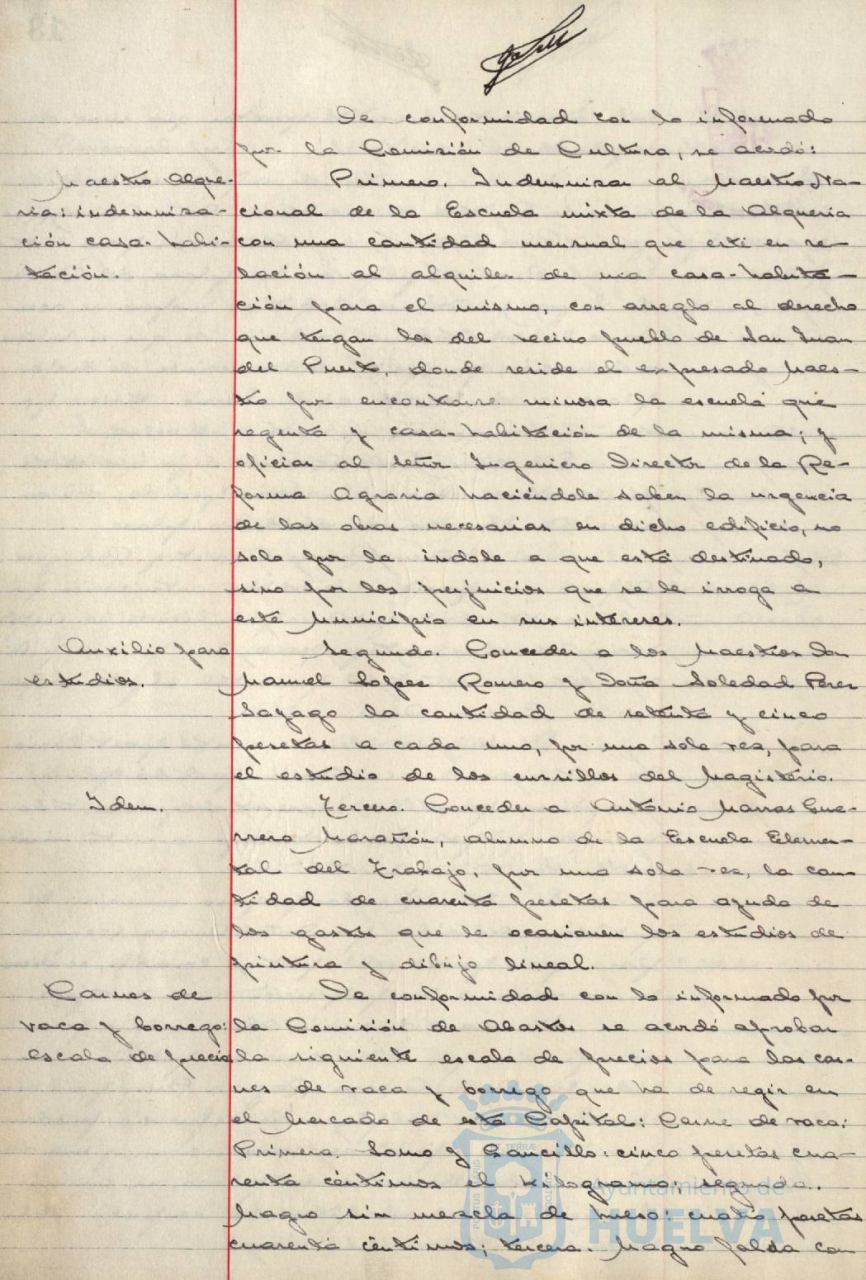 De conformidad con lo informado
por la Comisión de Cultura, se acordó:
Maestro Alque-
ria: indemniza-
ción casa-habi-
tación.
Primero. Indemnizar al Maestro Na-
cional de la Escuela mixta de la Alqueria
con una cantidad mensual que esté en re-
lación al alquiler de una casa-habita-
ción para el mismo, con arreglo al derecho
que tengan los del vecino pueblo de San Juan
del Puerto, donde reside el expresado Maes-
tro por encontrarse ruinosa la escuela que
regenta y casa-habitación de la misma; y
oficiar al señor Ingeniero Director de la Re-
forma Agraria haciéndole saber la urgencia
de las obras necesarias en dicho edificio, no
solo por la indole a que está destinado,
sino por los perjuicios que se le irroga a
este Municipio en sus intereses.
Auxilio para
estudios.
Segundo. Conceder a los Maestros Don
Manuel López Romero y Doña Soledad Perez
Sayago la cantidad de setenta y cinco
pesetas a cada uno, por una sola vez, para
el estudio de los cursillos del Magisterio.
Idem.
Tercero. Conceder a Antonio Gue-
rrero Marañón, alumno de la Escuela Elemen-
tal del Trabajo, por una sola vez, la can-
tidad de cuarenta pesetas para ayuda de
los gastos que le ocasionen los estudios de
pintura y dibujo lineal.
Carnes de
vaca y borrego:
escala de precios
De conformidad con lo informado por
la Comisión de Abastos se acordó aprobar
la siguiente escala de precios para las car-
nes de vaca y borrego que ha de regir en
el Mercado de esta Capital: Carne de vaca:
Primera. Lomo y Gancillo: cinco pesetas cua-
renta céntimos el kilogramo; segunda.
Magro sin mezcla de hueso: cuatro pesetas
cuarenta céntimos; tercera. Magro falda con
Ayuntamiento de
HUELVA